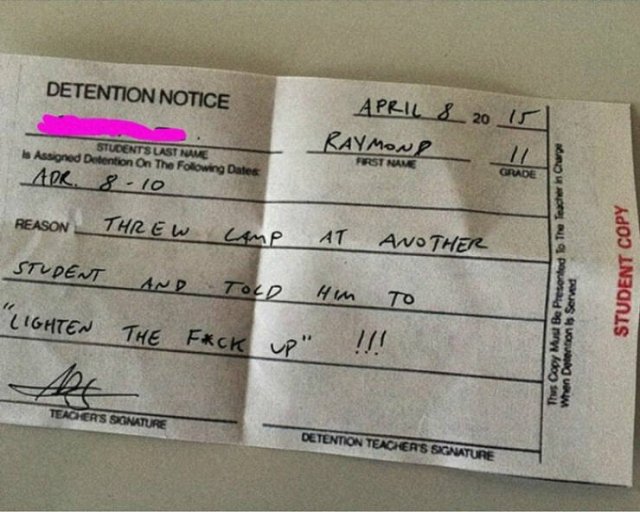 DETENTION NOTICE
APRIL 8 20 15
STUDENT'S LAST NAME
RAYMOND
FIRST NAME
11
GRADE
Is Assigned Detention On The Following Dates:
APR. 8-10
REASON THREW LAMP AT ANOTHER
STUDENT AND TOLD HIM TO
"LIGHTEN THE F*CK UP" !!!
TEACHER'S SIGNATURE
DETENTION TEACHER'S SIGNATURE
This Copy Must Be Presented To The Teacher in Charge
When Detention Is Served
STUDENT COPY